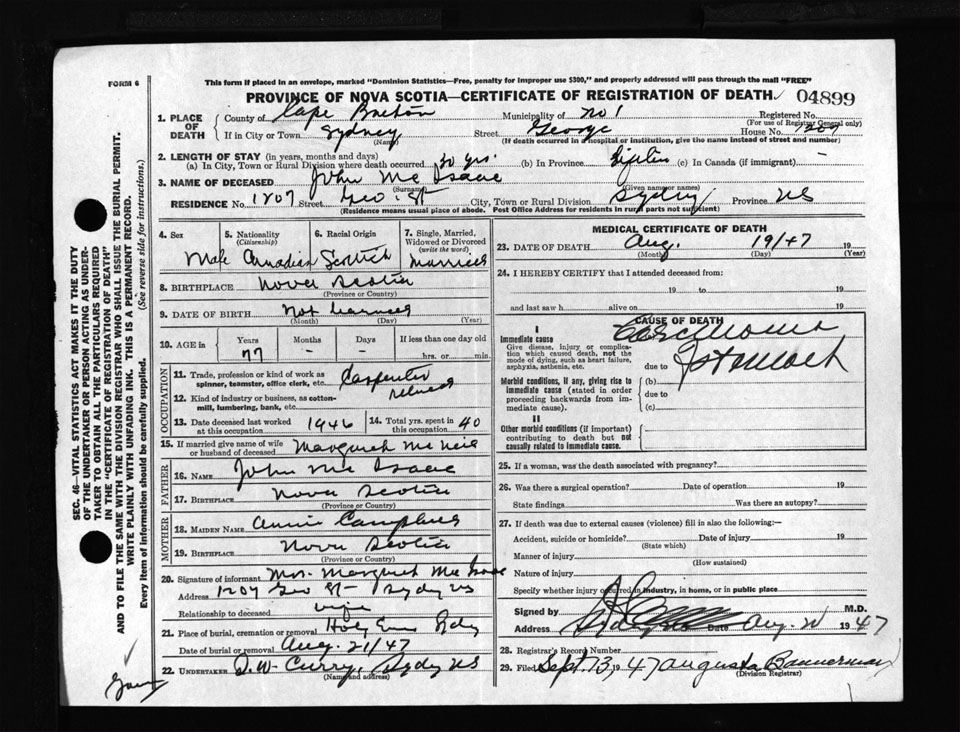 FORM 6
This form if placed in an envelope, marked "Dominion Statistics—Free, penalty for improper use $300," and properly addressed will pass through the mail "FREE"
PROVINCE OF NOVA SCOTIA—CERTIFICATE OF REGISTRATION OF DEATH. 04899
1. PLACE OF DEATH County of Cape Breton Municipality of No 1 Registered No.
(For use of Registrar General only)
If in City or Town Sydney Street George House No. 1207
(Name) (If death occurred in a hospital or institution, give the name instead of street and number)
2. LENGTH OF STAY (in years, months and days)
(a) In City, Town or Rural Division where death occurred 30 yrs. (b) In Province Lifetime (c) In Canada (if immigrant) —
3. NAME OF DECEASED John Mc Isaac
(Surname) (Given name or names)
RESIDENCE No. 1207 Street Geo. St City, Town or Rural Division Sydney Province NS
(Residence means usual place of abode. Post Office Address for residents in rural parts not sufficient)
4. Sex 5. Nationality (Citizenship) 6. Racial Origin 7. Single, Married, Widowed or Divorced (write the word)
Male Canadian Scottish Married
8. BIRTHPLACE Nova Scotia
(Province or Country)
9. DATE OF BIRTH Not learned
(Month) (Day) (Year)
10. AGE in Years Months Days If less than one day old
77 - - hrs. or min.
OCCUPATION
11. Trade, profession or kind of work as spinner, teamster, office clerk, etc. Carpenter
retired
12. Kind of industry or business, as cotton-mill, lumbering, bank, etc.
13. Date deceased last worked at this occupation 1946 14. Total yrs. spent in this occupation 40
15. If married give name of wife or husband of deceased Margaret Mc Neil
FATHER
16. NAME John Mc Isaac
17. BIRTHPLACE Nova Scotia
(Province or Country)
MOTHER
18. MAIDEN NAME Annie Campbell
19. BIRTHPLACE Nova Scotia
(Province or Country)
20. Signature of informant Mrs. Margaret Mc Isaac
Address 1207 Geo St Sydney NS
Relationship to deceased wife
21. Place of burial, cremation or removal Holy Sydney
Date of burial or removal Aug. 21/47
22. UNDERTAKER D.W. Curry, Sydney NS
(Name and address)
MEDICAL CERTIFICATE OF DEATH
23. DATE OF DEATH Aug. 19/47 19
(Month) (Day) (Year)
24. I HEREBY CERTIFY that I attended deceased from:
19 to 19
and last saw h alive on 19
CAUSE OF DEATH
I
Immediate cause
Give disease, injury or complication which caused death, not the mode of dying, such as heart failure, asphyxia, asthenia, etc.
Carcinoma
due to of Stomach
Morbid conditions, if any, giving rise to immediate cause (stated in order proceeding backwards from immediate cause).
(b)
due to
(c)
II
Other morbid conditions (if important) contributing to death but not causally related to immediate cause.
25. If a woman, was the death associated with pregnancy?
26. Was there a surgical operation? Date of operation 19
State findings Was there an autopsy?
27. If death was due to external causes (violence) fill in also the following:—
Accident, suicide or homicide? Date of injury 19
(State which)
Manner of injury
(How sustained)
Nature of injury
Specify whether injury occurred in industry, in home, or in public place
Signed by M.D.
Address Sydney Date Aug. 1947
28. Registrar's Record Number
29. Filed Sept. 13, 1947 Augusta Bannerman
(Division Registrar)
SEC. 46—VITAL STATISTICS ACT MAKES IT THE DUTY
OF THE UNDERTAKER OR PERSON ACTING AS UNDER-
TAKER TO OBTAIN ALL THE PARTICULARS REQUIRED
IN THE "CERTIFICATE OF REGISTRATION OF DEATH"
AND TO FILE THE SAME WITH THE DIVISION REGISTRAR WHO SHALL ISSUE THE BURIAL PERMIT.
WRITE PLAINLY WITH UNFADING INK. THIS IS A PERMANENT RECORD.
Every item of information should be carefully supplied. (See reverse side for instructions.)